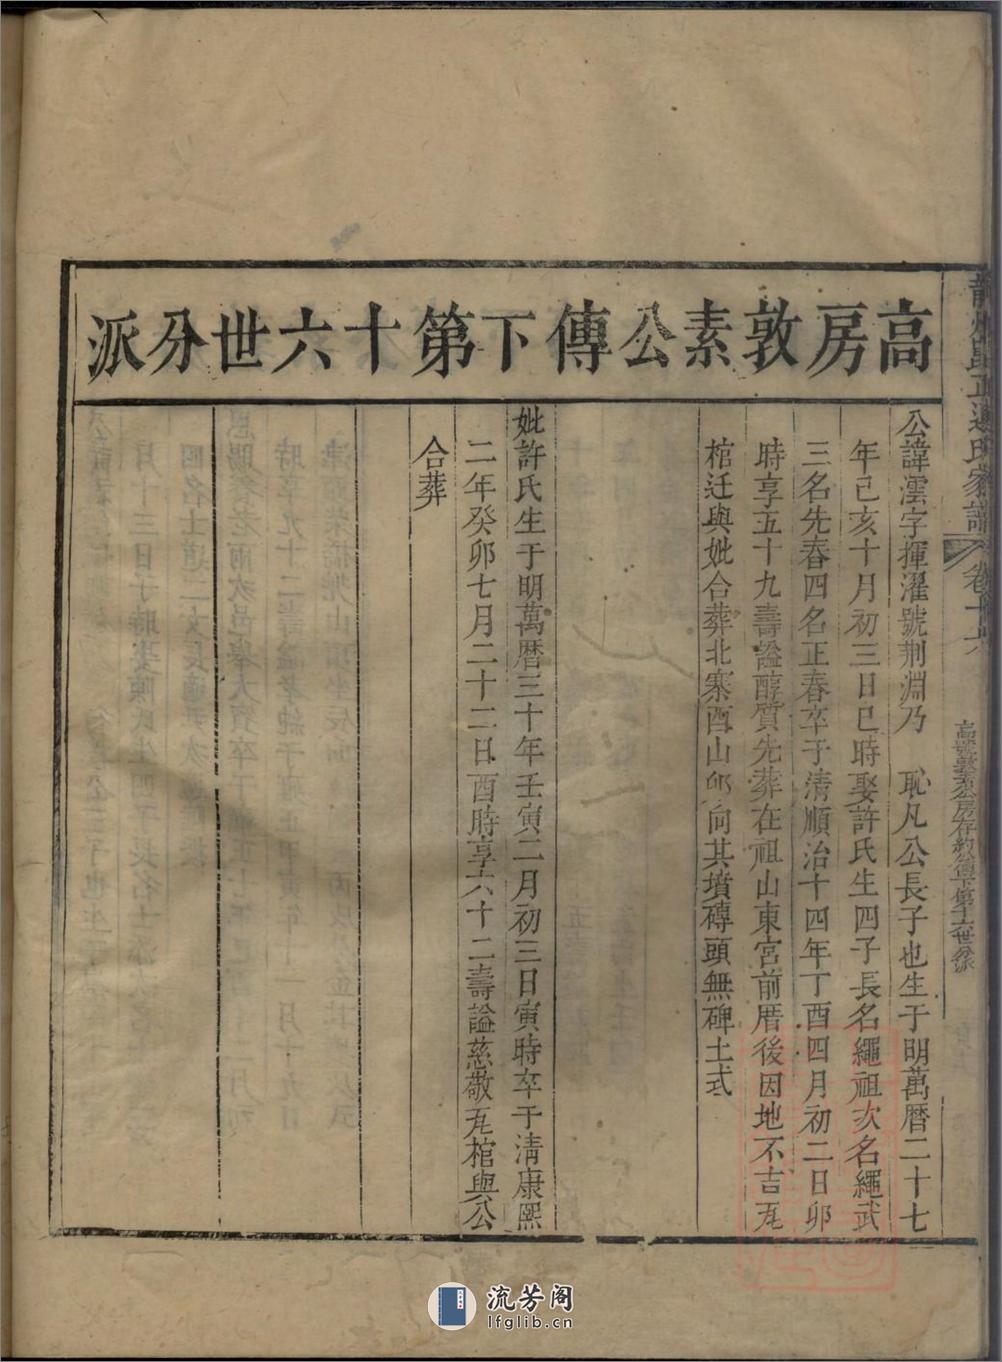 高房敦素公傳下第十六世分派
公諱澐字揮濯號荆淵乃 耻凡公長子也生于明萬曆二十七
年己亥十月初三日巳時娶許氏生四子長名繩祖次名繩武
三名先春四名正春卒于清順治十四年丁酉四月初二日卯
時享五十九壽謚醇質先葬在祖山東宮前厝後因地不吉瓦
棺迁與妣合葬北寨酉山卯向其墳磚頭無碑土式
妣許氏生于明萬曆三十年壬寅二月初三日寅時卒于清康熙
二年癸卯七月二十二日酉時享六十二壽謚慈敬瓦棺與公
合葬
氏家譜
卷十六
房存約公傳下第十六世分派
流芳阁
lfglib.cn